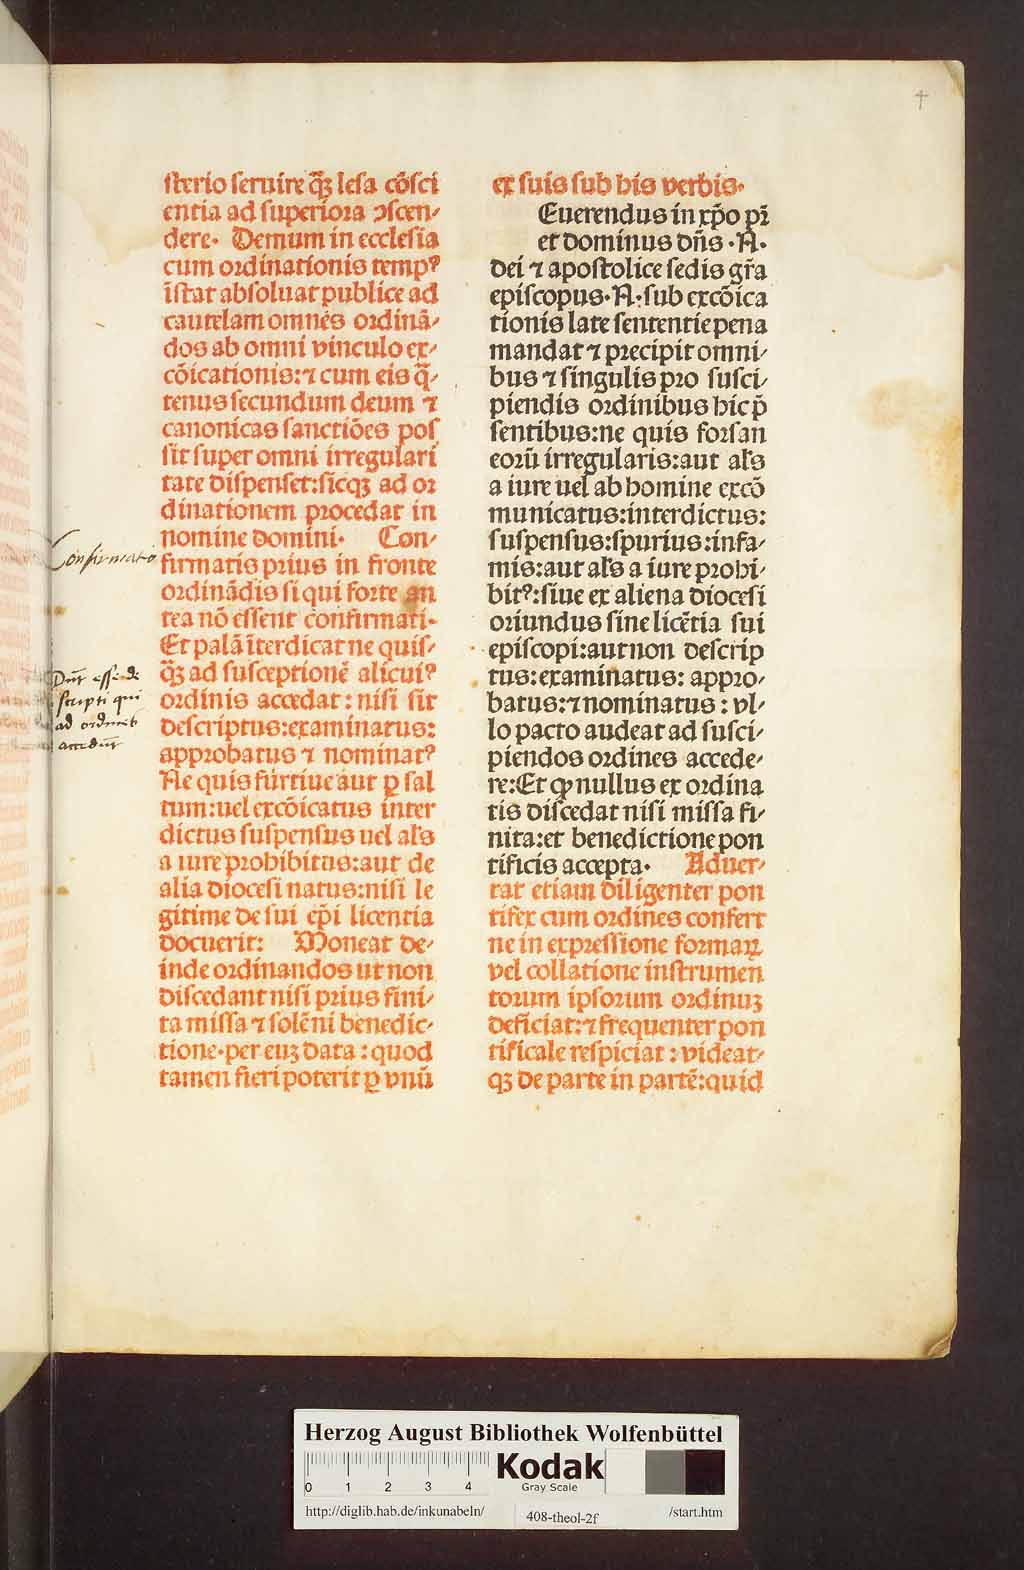 4
sterio seruire q̃ꝫ lesa cõsci
entia ad superiora ɔscen-
dere. Demum in ecclesia
cum ordinationis tempꝰ
ĩstat absoluat publice ad
cautelam omnes ordinã-
dos ab omni vinculo ex-
cõicationis: ⁊ cum eis q̃-
tenus secundum deum ⁊
canonicas sanctiões pos
sit super omni irregulari
tate dispenset: sicqꝫ ad or
dinationem procedat in
nomine domini. Con-
firmatis prius in fronte
ordinãdis si qui forte an
tea nõ essent confirmati.
Et palã ĩterdicat ne quis-
q̃ꝫ ad susceptionẽ alicuiꝰ
ordinis accedat: nisi sit
descriptus: examinatus:
approbatus ⁊ nominatꝰ
Ne quis furtiue aut ꝑ sal
tum: uel excõicatus inter
dictus suspensus uel al's
a iure prohibitus: aut de
alia diocesi natus: nisi le
gitime de sui ep̃i licentia
docuerit: Moneat de-
inde ordinandos ut non
discedant nisi prius fini-
ta missa ⁊ solẽni benedic-
tione. per euꝫ data: quod
tamen fieri poterit ꝑ vnũ
Confirmatio
Dñt esse de
scripti qui
ad ordines
accedũt
ex suis sub his verbis.
Euerendus in xp̃o pr̃
et dominus dñs .N.
dei ⁊ apostolice sedis gr̃a
episcopus. N. sub excõica
tionis late sententie pena
mandat ⁊ precipit omni-
bus ⁊ singulis pro susci-
piendis ordinibus hic p̃
sentibus: ne quis forsan
eorũ irregularis: aut al's
a iure uel ab homine excõ
municatus: interdictus:
suspensus: spurius: infa-
mis: aut al's a iure prohi-
bitꝰ: siue ex aliena diocesi
oriundus sine licẽtia sui
episcopi: aut non descrip
tus: examinatus: appro-
batus: ⁊ nominatus: vl-
lo pacto audeat ad susci-
piendos ordines accede-
re: Et ꝙ nullus ex ordina
tis discedat nisi missa fi-
nita: et benedictione pon
tificis accepta. Aduer-
tat etiam diligenter pon
tifex cum ordines confert
ne in expressione formaꝝ
vel collatione instrumen
torum ipsorum ordinuꝫ
deficiat: ⁊ frequenter pon
tificale respiciat: videat-
qꝫ de parte in partẽ: quid
Herzog August Bibliothek Wolfenbüttel
0 1 2 3 4
Kodak
Gray Scale
http://diglib.hab.de/inkunabeln/ 408-theol-2f /start.htm